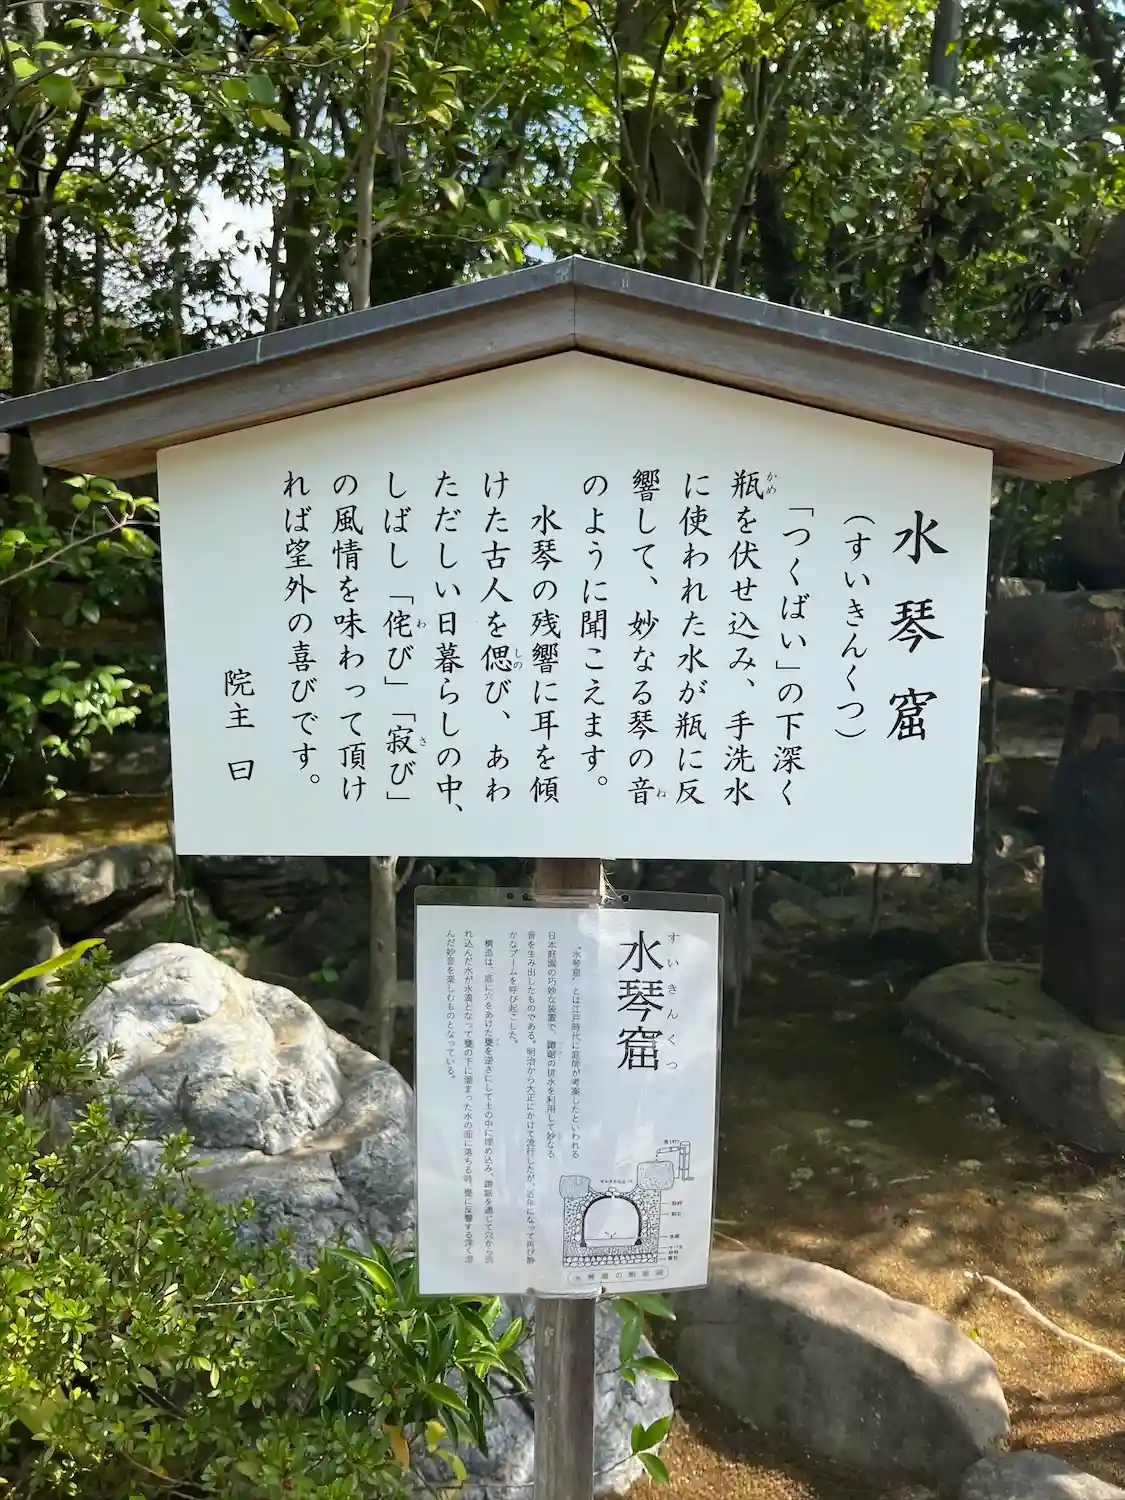 水琴窟
(すいきんくつ)
「つくばい」の下深く
瓶を伏せ込み、手洗水
に使われた水が瓶に反
響して、妙なる琴の音
のように聞こえます。
水琴の残響に耳を傾
けた古人を偲び、あわ
ただしい日暮らしの中、
しばし「侘び」「寂び」
の風情を味わって頂け
れば望外の喜びです。
院主 曰
すいきんくつ
水琴窟
"水琴窟"とは江戸時代に庭師が考案したといわれる
日本庭園の巧妙な装置で、蹲踞の排水を利用して妙なる
音を生み出したものである。明治から大正にかけて流行したが、近年になって再び静
かなブームを呼び起こした。
構造は、底に穴をあけた甕を逆さにして土の中に埋め込み、蹲踞を通じて穴から流
れ込んだ水が水滴となって甕の下に溜まった水の面に落ちる時、甕に反響する深く澄
んだ妙音を楽しむものとなっている。
水琴窟の断面図